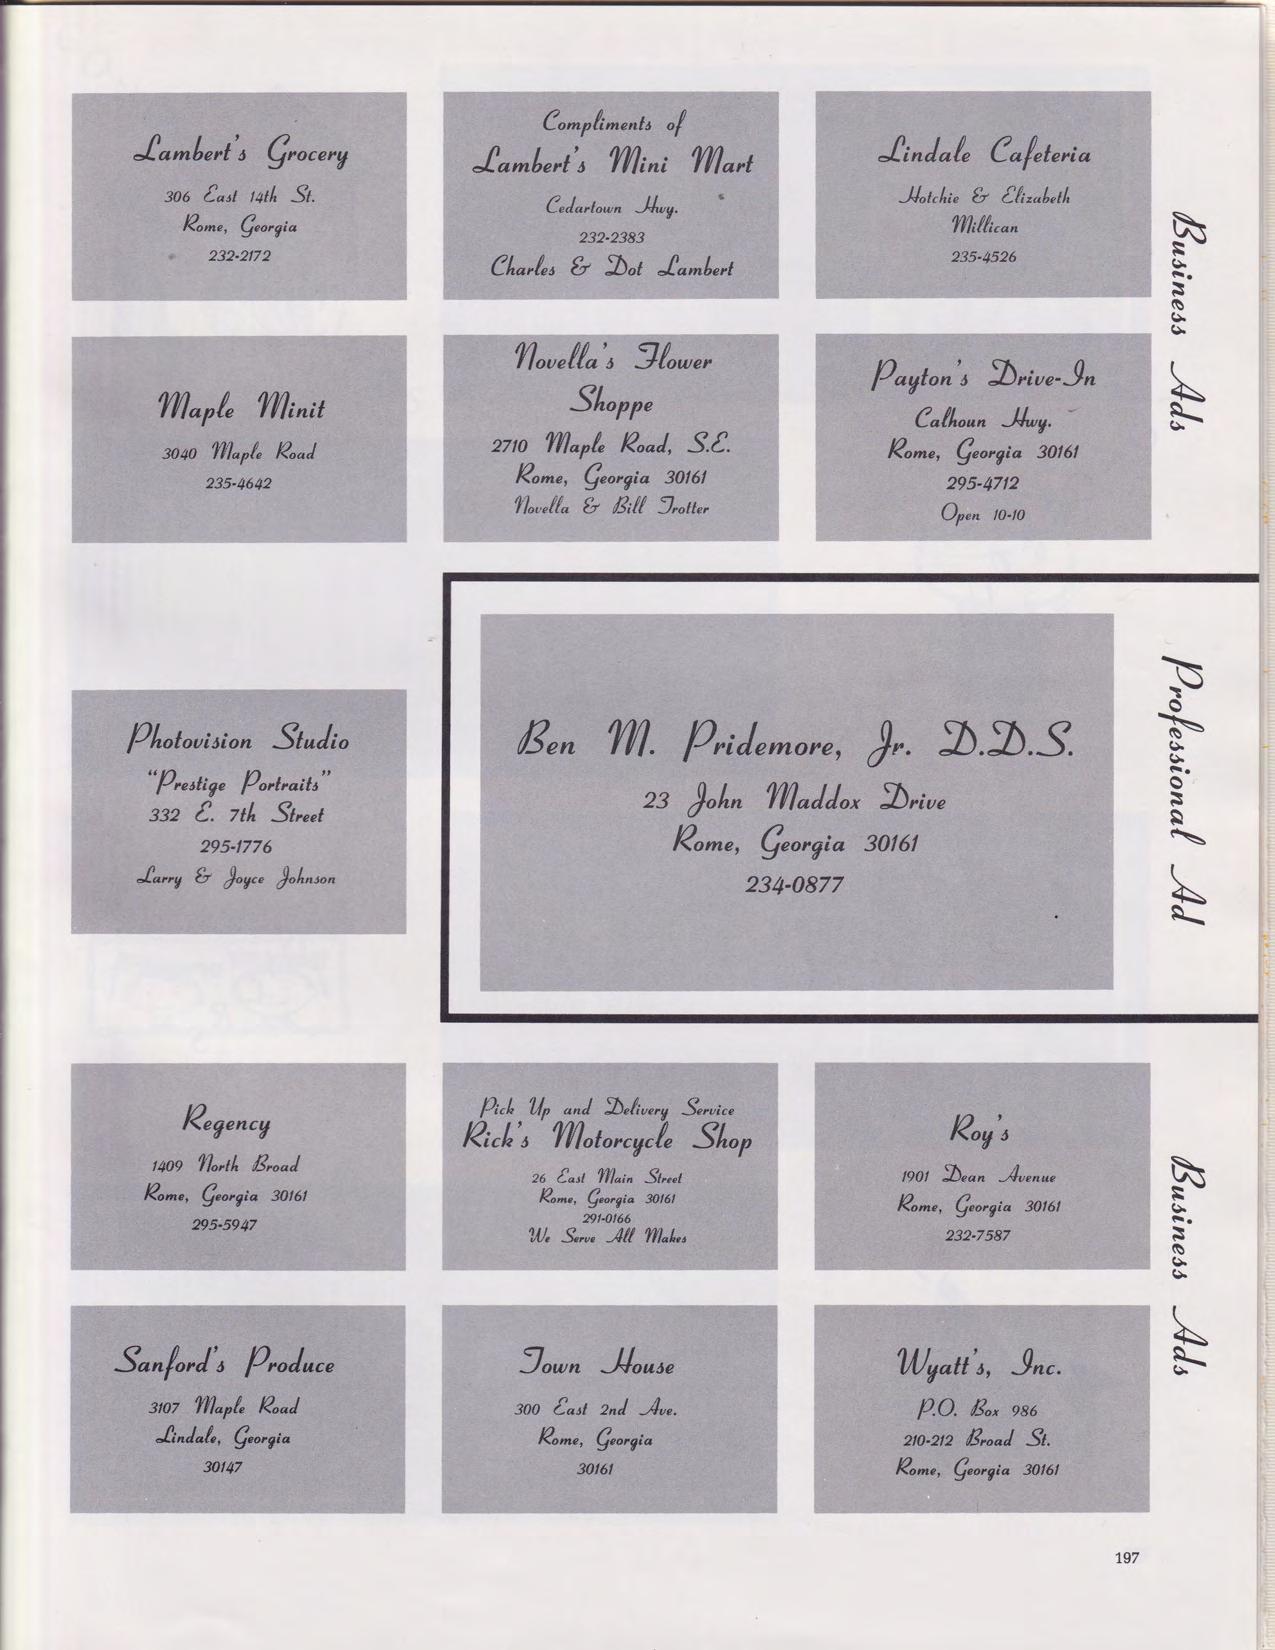 Lambert's Grocery
306 East 14th St.
Rome, Georgia
232-2172
Compliments of
Lambert's Mini Mart
Cedartown Hwy.
232-2383
Charles & Dot Lambert
Lindale Cafeteria
Hotchie & Elizabeth
Millican
235-4526
Business Ads
Maple Minit
3040 Maple Road
235-4642
Novella's Flower
Shoppe
2710 Maple Road, S.E.
Rome, Georgia 30161
Novella & Bill Trotter
Payton's Drive-In
Calhoun Hwy.
Rome, Georgia 30161
295-4712
Open 10-10
Photovision Studio
"Prestige Portraits"
332 E. 7th Street
295-1776
Larry & Joyce Johnson
Ben M. Pridemore, Jr. D.D.S.
23 John Maddox Drive
Rome, Georgia 30161
234-0877
Professional Ad
Regency
1409 North Broad
Rome, Georgia 30161
295-5947
Pick Up and Delivery Service
Rick's Motorcycle Shop
26 East Main Street
Rome, Georgia 30161
291-0166
We Serve All Makes
Roy's
1901 Dean Avenue
Rome, Georgia 30161
232-7587
Business Ads
Sanford's Produce
3107 Maple Road
Lindale, Georgia
30147
Town House
300 East 2nd Ave.
Rome, Georgia
30161
Wyatt's, Inc.
P.O. Box 986
210-212 Broad St.
Rome, Georgia 30161
197